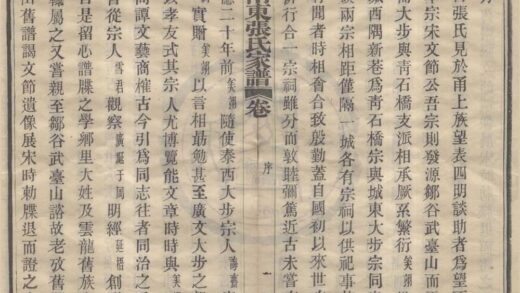 張氏見於甬上族望表四明談助者爲望
宗宋文節公吾宗則發源鄒谷武臺山而
大步與青石橋支派相承厥系繁衍美翊
西隅新巷爲青石橋宗與城東大步宗同
兩宗相距僅隔一城各有宗祠以供祀事
聞者時相會合致殷勤蓋自國初以來世
行合一宗祠雖分而敦睦彌篤近古未嘗
東張氏家譜 卷 序
二十年前美翊隨使泰西大步宗人
實贈美翊以言相勗勉甚至廣文大步之
孝友式其宗人尤博覽能文章時時與美
譚文藝商榷古今引爲同志往者同治之
從宗人雪君觀察于周明經創
是留心譜牒之學鄉里大姓及雲龍舊族
屬之又嘗親至鄒谷武臺山諮故老攷舊
出舊譜謁文節遺像展宋時勅牒退而證之